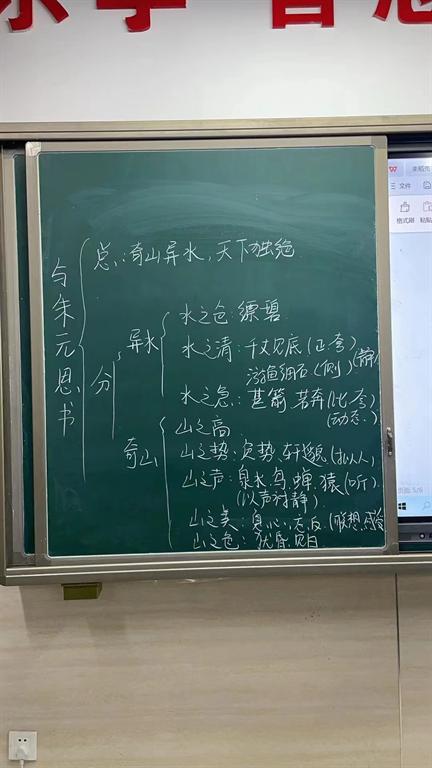 与朱元思书
总:奇山异水,天下独绝
分
异水
水之色:缥碧
水之清:千丈见底(正
游鱼细石(侧)(静
水之急:甚箭 若奔(比
(动态)
奇山
山之高
山之势:负势 轩邈(拟人)
山之声:泉水.鸟.蝉.猿(听)
(以声衬静)
山之美:息心、忘反(联想
山之色:犹昏见日
文件
格式刷
粘贴